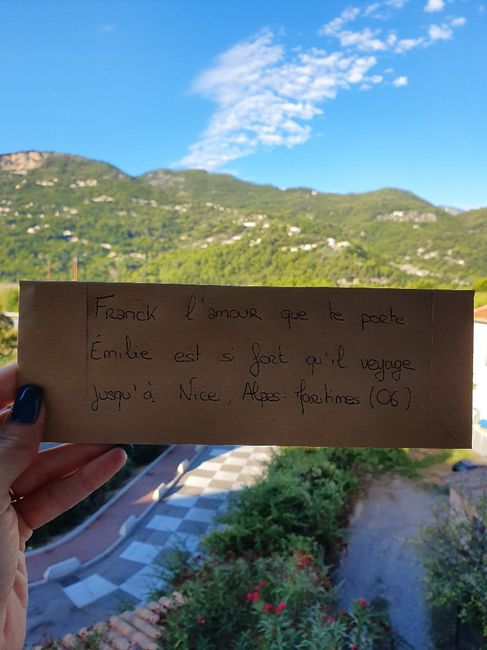 Franck l'amour que te porte
Émilie est si fort qu'il voyage
jusqu'à Nice, Alpes-Maritimes (06)